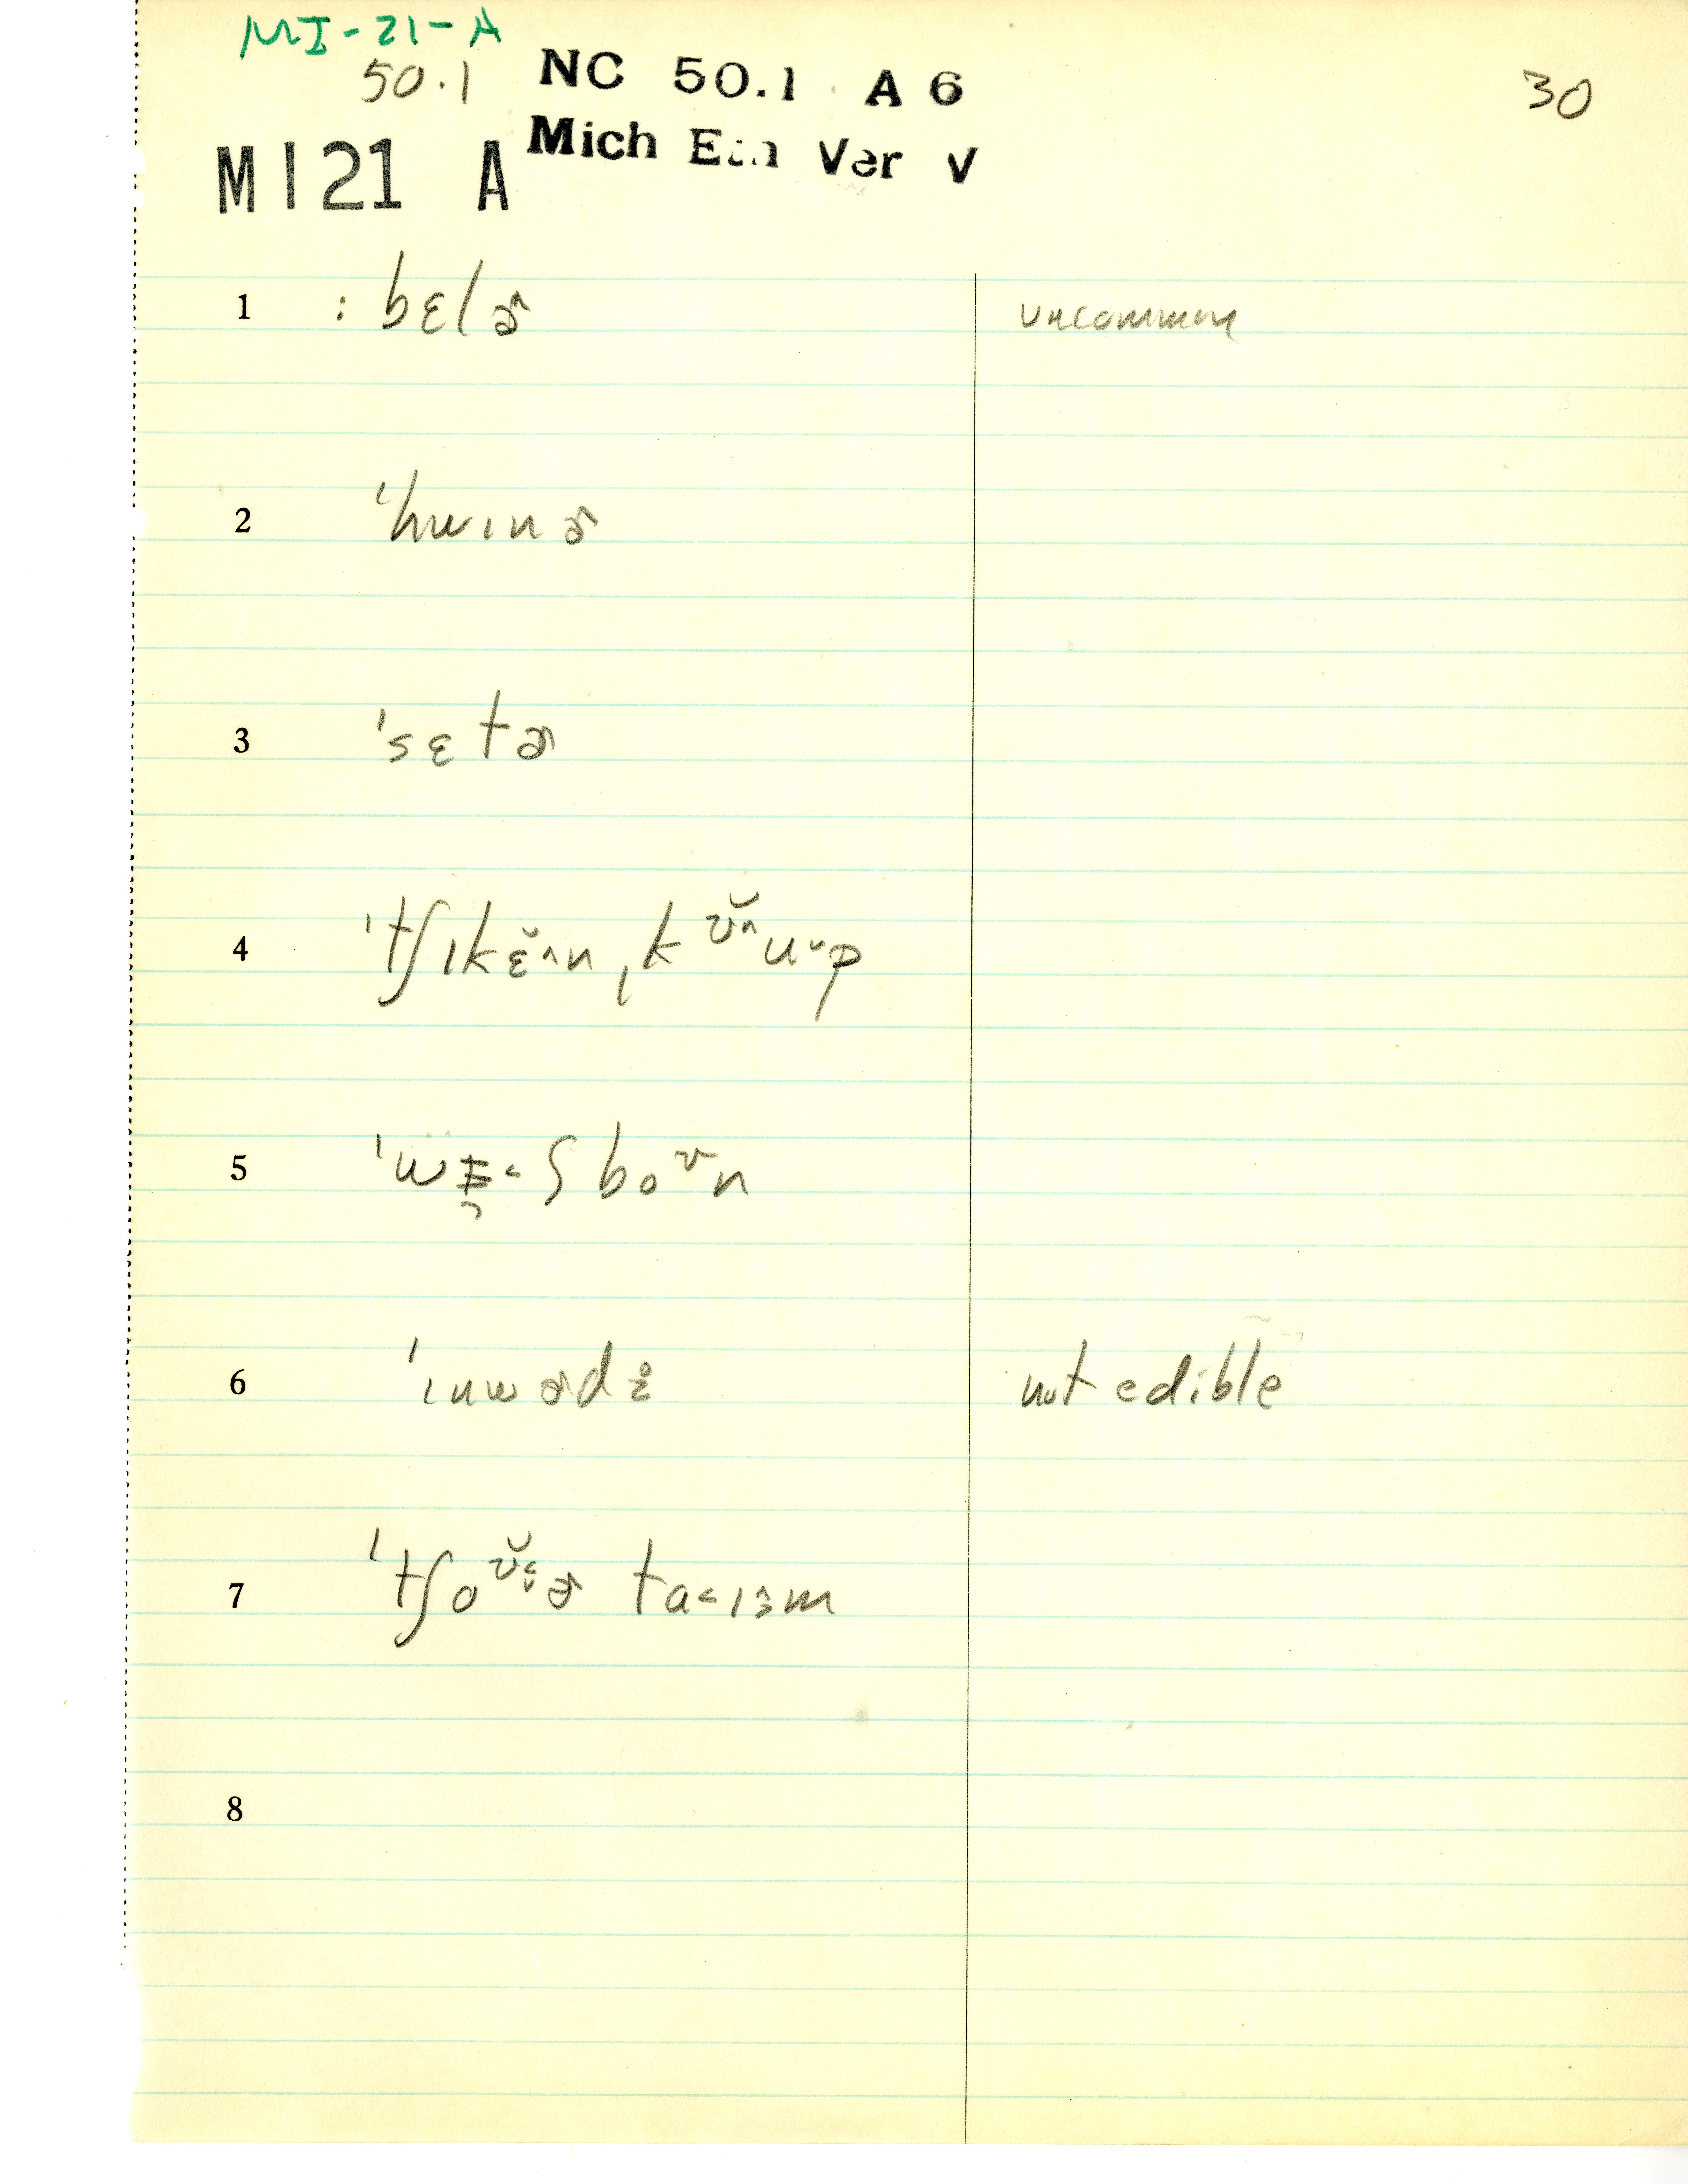 MI-21-A
50.1 NC 50.1 A 6 30
MI21 A Mich Ver V
1 : bɛlɚ uncommon
2 ˈhwɪnɚ
3 ˈsɛtɚ
4 ˈtʃɪkɛ̆˄n ˌkʊ̆˄u˅p
5 boᶷn
6 ˈɪnwɚdz̥ not edible
7 ta˂ɪɜm
8